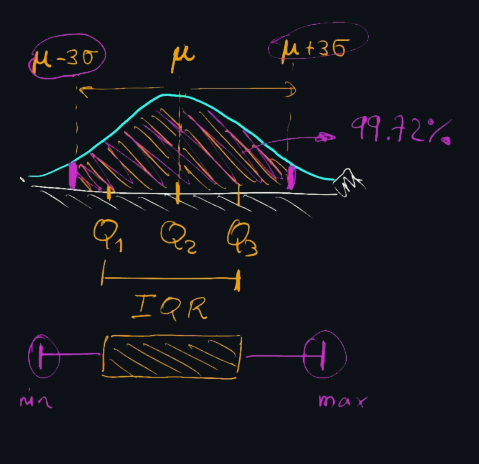 μ-3σ μ μ+3σ
99.72%
Q1 Q2 Q3
IQR
min max